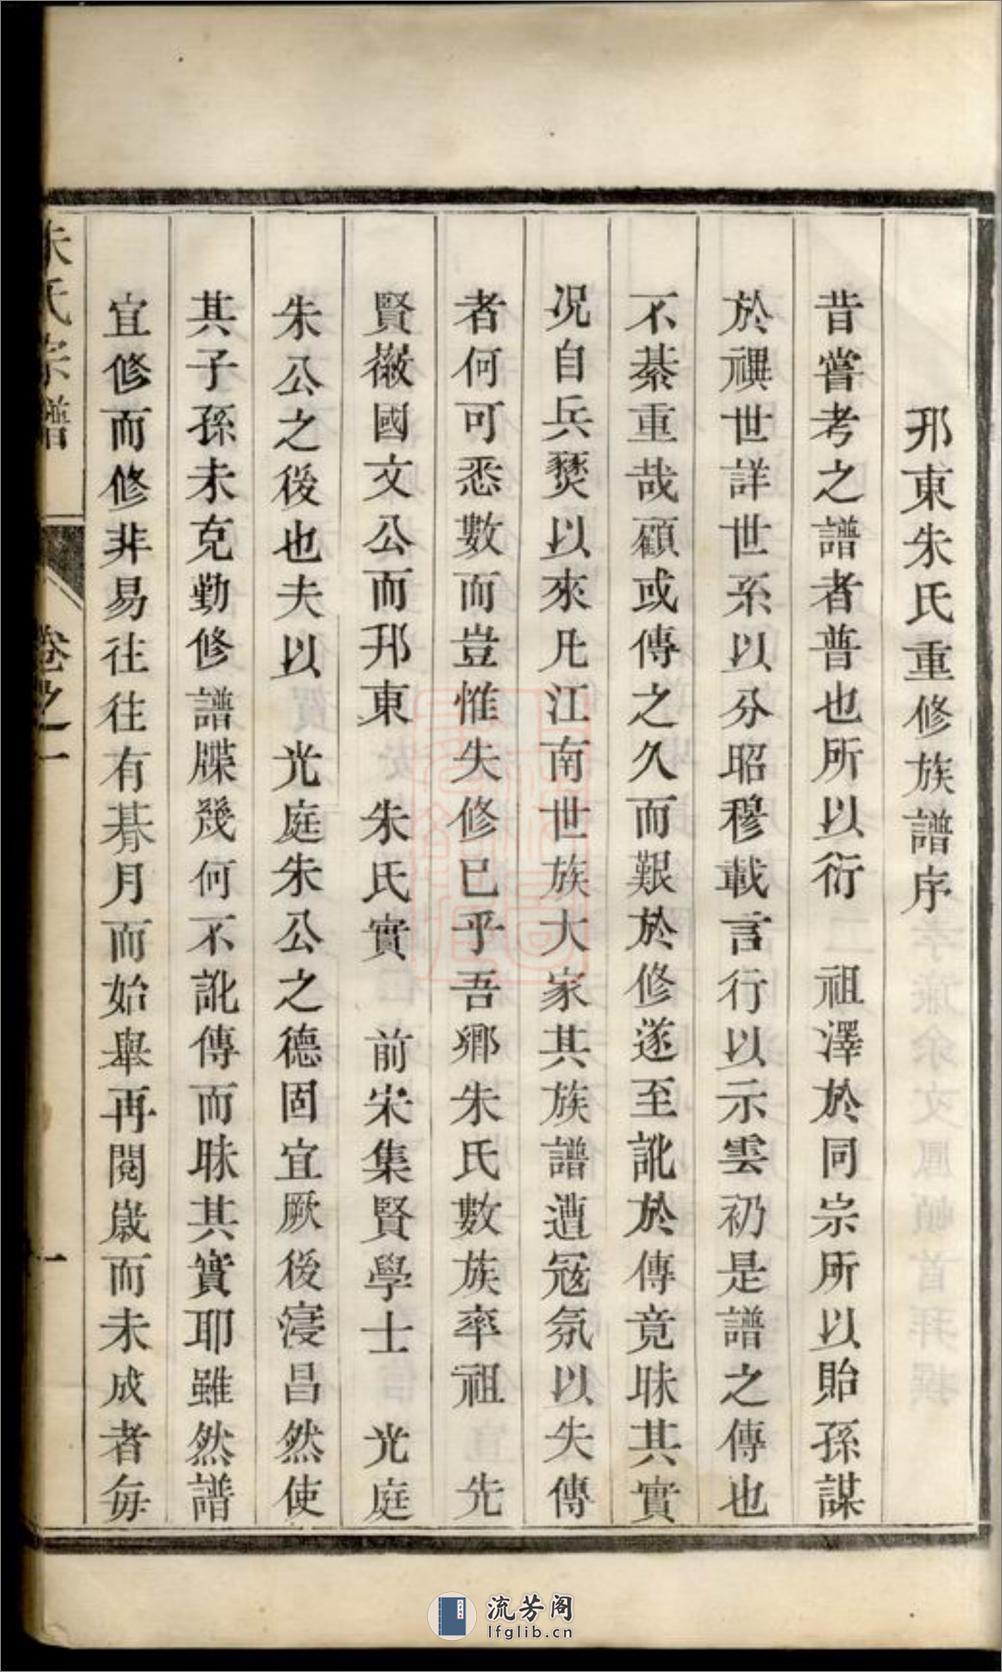 邢東朱氏重修族譜序
昔嘗考之譜者普也所以衍　祖澤於同宗所以貽孫謀
於禩世詳世系以分昭穆載言行以示雲礽是譜之傳也
不綦重哉顧或傳之久而艱於修遂至訛於傳竟昧其實
况自兵燹以來凡江南世族大家其族譜遭寇氛以失傳
者何可悉數而豈惟失修已乎吾鄉朱氏數族率祖　先
賢徽國文公而邢東　朱氏實　前宋集賢學士　光庭
朱公之後也夫以　光庭朱公之德固宜厥後寖昌然使
其子孫未克勤修譜牒幾何不訛傳而昧其實耶雖然譜
宜修而修非易往往有朞月而始舉再閱歲而未成者每
朱氏宗譜　卷之一　一
流芳阁
lfglib.cn